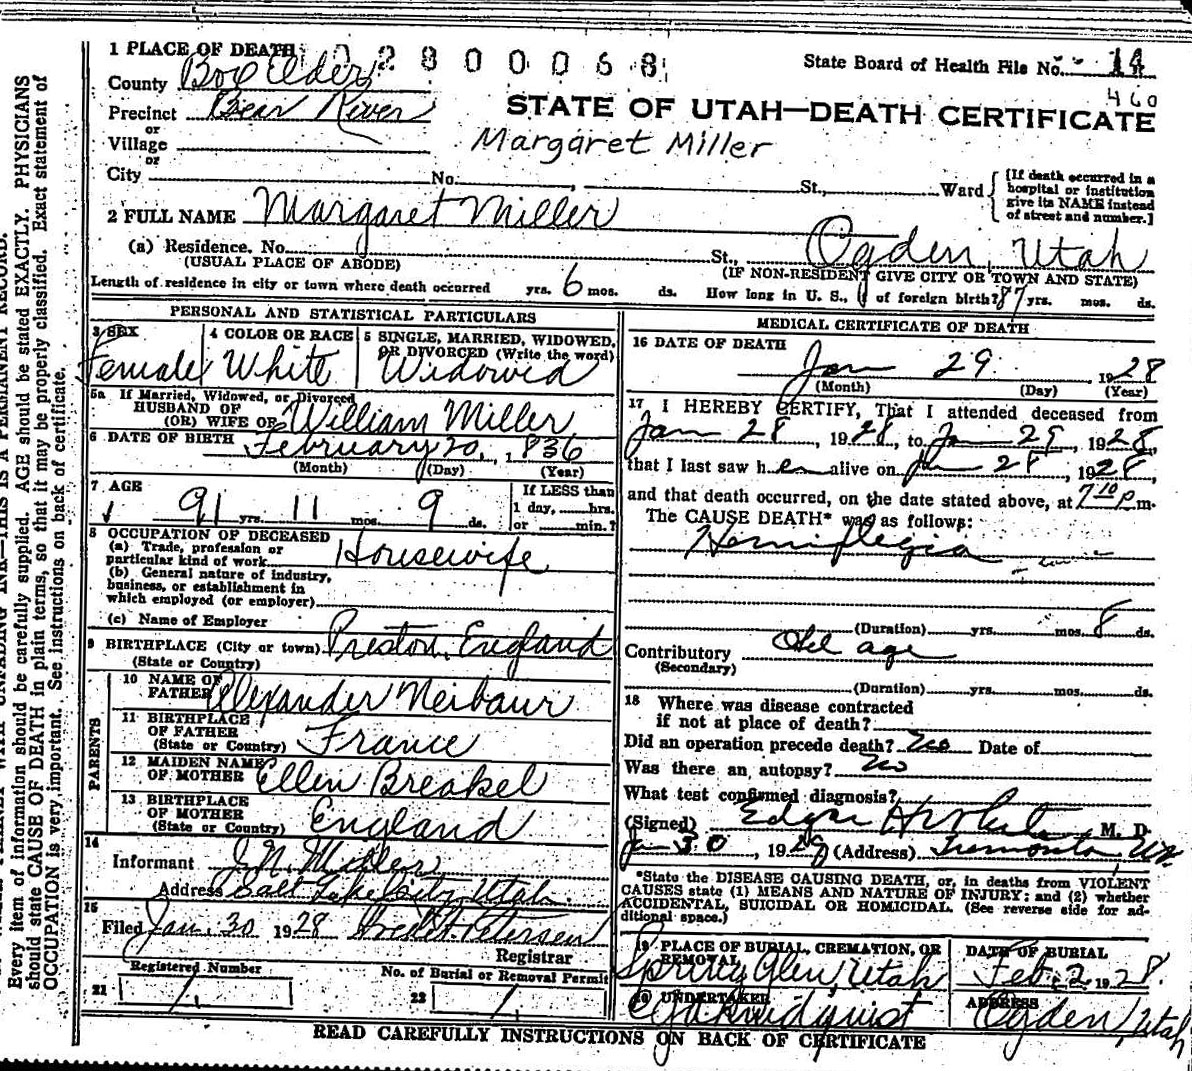 1 PLACE OF DEATH
0 2 8 0 0 0 6 8
State Board of Health File No. 14
460
County Box Elder
Precinct Bear River
or
Village
or
City No. St., Ward
[If death occurred in a hospital or institution give its NAME instead of street and number.]
STATE OF UTAH—DEATH CERTIFICATE
Margaret Miller
2 FULL NAME Margaret Miller
(a) Residence. No. St., Ogden, Utah
(USUAL PLACE OF ABODE) (IF NON-RESIDENT GIVE CITY OR TOWN AND STATE)
Length of residence in city or town where death occurred yrs. 6 mos. ds. How long in U. S., if of foreign birth? 87 yrs. mos. ds.
PERSONAL AND STATISTICAL PARTICULARS
3 SEX Female
4 COLOR OR RACE White
5 SINGLE, MARRIED, WIDOWED, OR DIVORCED (Write the word) Widowid
5a If Married, Widowed, or Divorced
HUSBAND OF
(OR) WIFE OF William Miller
6 DATE OF BIRTH February 20, 1836
(Month) (Day) (Year)
7 AGE 91 yrs. 11 mos. 9 ds.
If LESS than
1 day, hrs.
or min.?
8 OCCUPATION OF DECEASED
(a) Trade, profession or
particular kind of work Housewife
(b) General nature of industry,
business, or establishment in
which employed (or employer)
(c) Name of Employer
9 BIRTHPLACE (City or town) Preston, England
(State or Country)
PARENTS
10 NAME OF
FATHER Alexander Neibaur
11 BIRTHPLACE
OF FATHER
(State or Country) France
12 MAIDEN NAME
OF MOTHER Ellen Breakel
13 BIRTHPLACE
OF MOTHER
(State or Country) England
14
Informant J. N. Miller
Address Salt Lake City, Utah.
15
Filed Jan. 30 1928 Petersen
Registrar
Registered Number
21 1.
No. of Burial or Removal Permit
22 1.
MEDICAL CERTIFICATE OF DEATH
16 DATE OF DEATH
Jan 29 1928
(Month) (Day) (Year)
17 I HEREBY CERTIFY, That I attended deceased from
Jan 28, 1928, to Jan 29, 1928,
that I last saw her alive on Jan 28, 1928,
and that death occurred, on the date stated above, at 7 10 P m.
The CAUSE DEATH* was as follows:
Hemiplegia
(Duration) yrs. mos. 8 ds.
Contributory Old age
(Secondary)
(Duration) yrs. mos. ds.
18 Where was disease contracted
if not at place of death?
Did an operation precede death? No Date of
Was there an autopsy? No
What test confirmed diagnosis?
(Signed) Edgar M. D.
Jan 30, 1928 (Address) Tremonton, Ut.
*State the DISEASE CAUSING DEATH, or, in deaths from VIOLENT
CAUSES state (1) MEANS AND NATURE OF INJURY; and (2) whether
ACCIDENTAL, SUICIDAL OR HOMICIDAL. (See reverse side for ad-
ditional space.)
19 PLACE OF BURIAL, CREMATION, OR
REMOVAL
Spring Glen, Utah
DATE OF BURIAL
Feb. 2 1928.
20 UNDERTAKER
ADDRESS
Ogden, Utah
READ CAREFULLY INSTRUCTIONS ON BACK OF CERTIFICATE
Every item of information should be carefully supplied. AGE should be stated EXACTLY. PHYSICIANS
should state CAUSE OF DEATH in plain terms, so that it may be properly classified. Exact statement of
OCCUPATION is very important. See instructions on back of certificate.